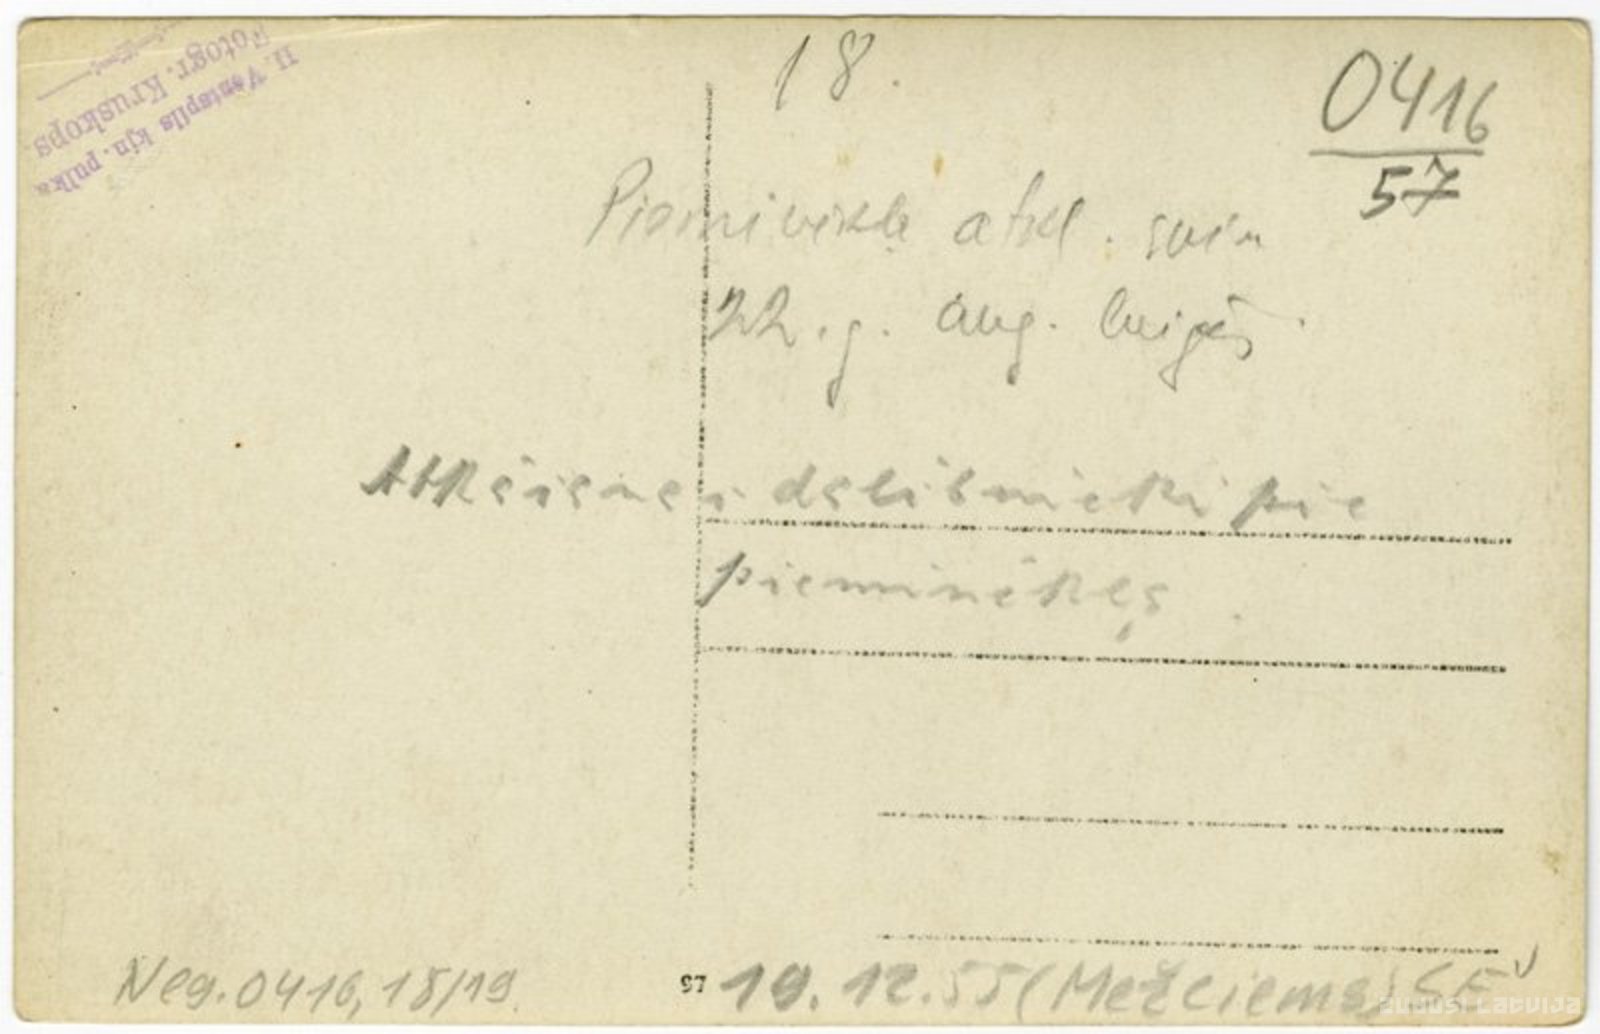 II. Ventspils kjn. pulka
Fotogr. Kruskops.
18.
0416
57
atkl.
22. g. aug. beigās.
Atklāšanas dalībnieki pie
pieminekļa.
Neg. 0416, 18/19
97
19. 12. 55 (Mežciems) SE
zudusi Latvija